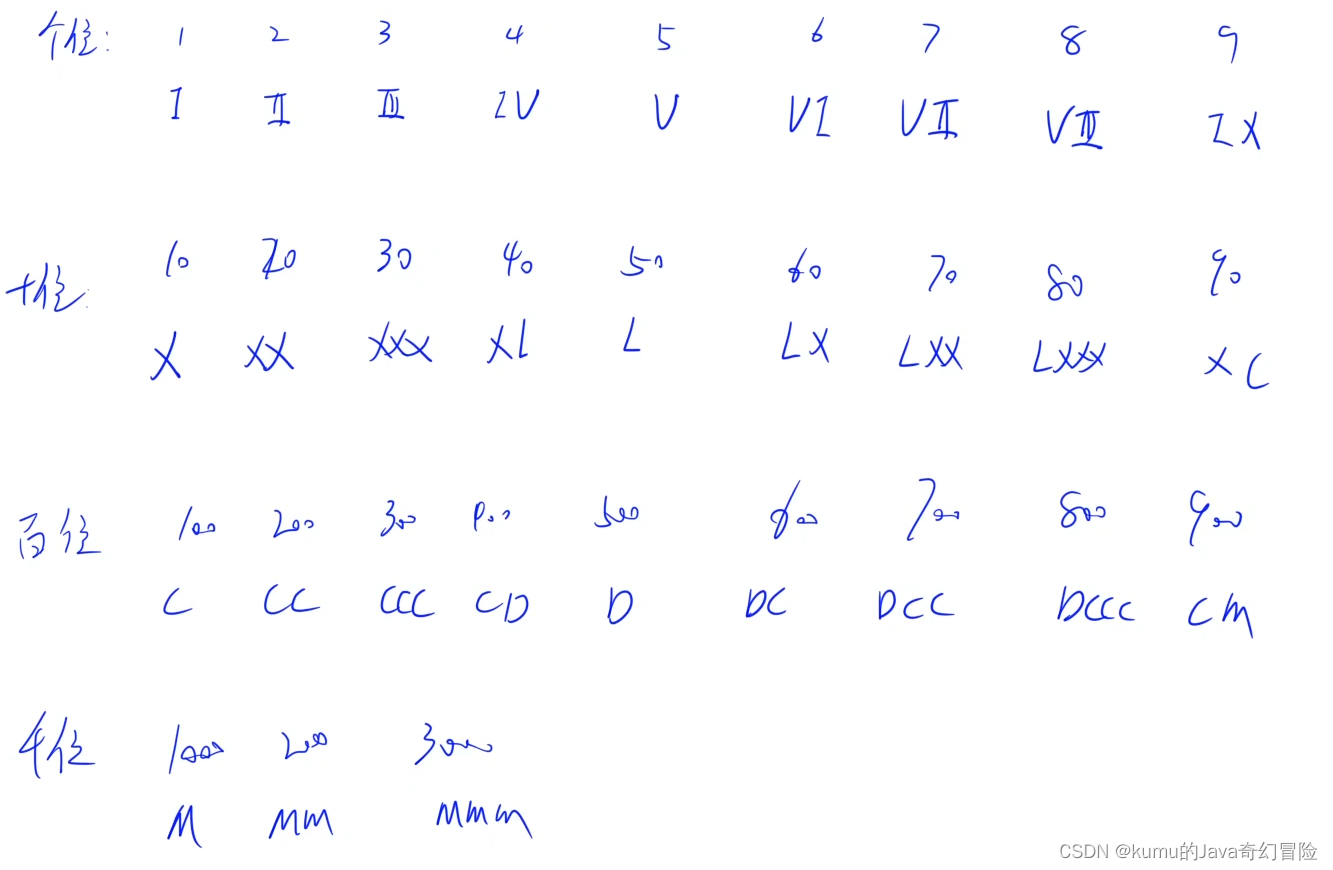 个位: 1 2 3 4 5 6 7 8 9
I II III IV V VI VII VIII IX
十位: 10 20 30 40 50 60 70 80 90
X XX XXX XL L LX LXX LXXX XC
百位 100 200 300 400 500 600 700 800 900
C CC CCC CD D DC DCC DCCC CM
千位 1000 2000 3000
M MM MMM
CSDN @kumu的Java奇幻冒险